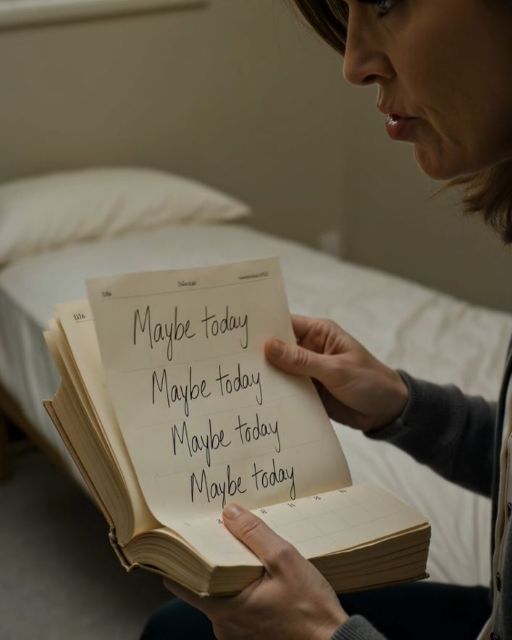 Maybe today
Maybe today
Maybe today
Maybe today